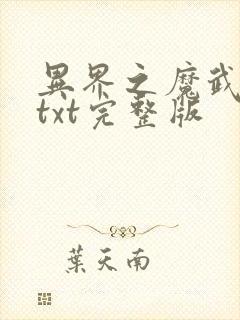 異界之魔武
txt完整版
葉天南